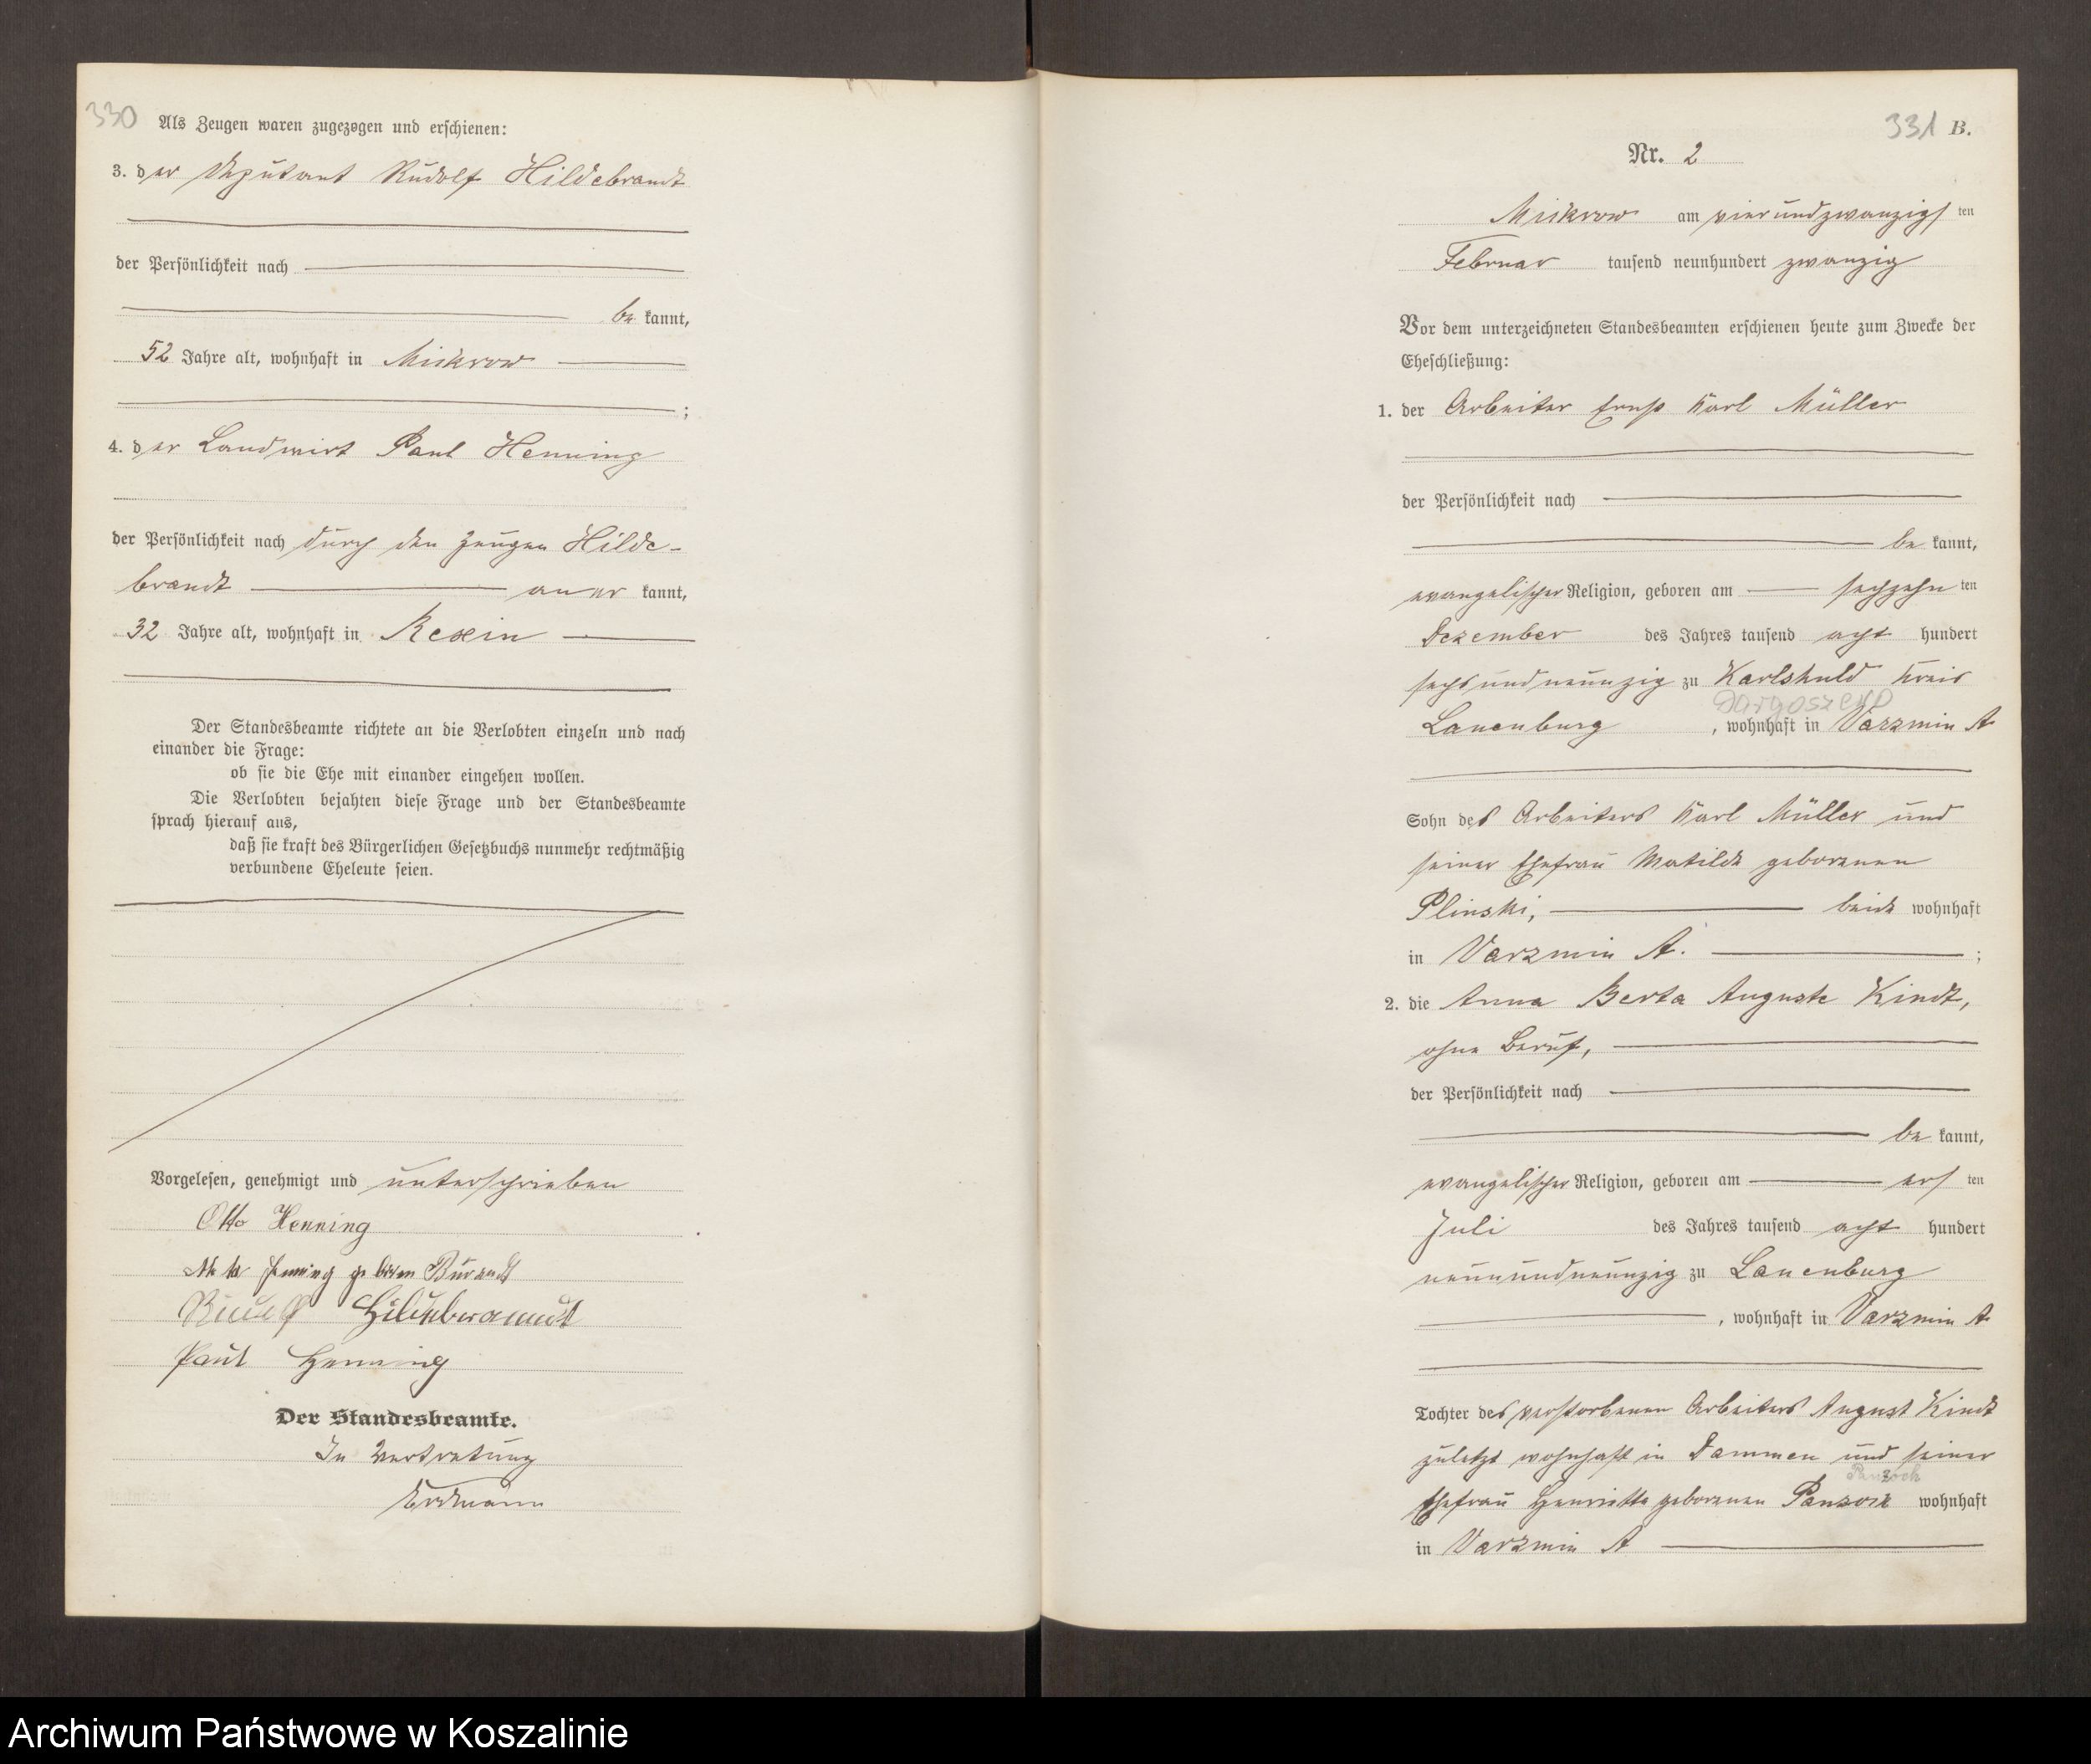 330
Als Zeugen waren zugezogen und erschienen:
3. der Deputant Rudolf Hildebrandt
der Persönlichkeit nach
be kannt,
52 Jahre alt, wohnhaft in Mickrow
;
4. der Landwirt Paul Henning
der Persönlichkeit nach durch den Zeugen Hilde-
brandt aner kannt,
32 Jahre alt, wohnhaft in Rexin
Der Standesbeamte richtete an die Verlobten einzeln und nach
einander die Frage:
ob sie die Ehe mit einander eingehen wollen.
Die Verlobten bejahten diese Frage und der Standesbeamte
sprach hierauf aus,
daß sie kraft des Bürgerlichen Gesetzbuchs nunmehr rechtmäßig
verbundene Eheleute seien.
Vorgelesen, genehmigt und unterschrieben
Otto Henning
Meta Henning geboren Burandt
Rudolf Hildebrandt
Paul Henning
Der Standesbeamte.
In Vertretung
Erdmann
331 B.
Nr. 2
Mickrow am vierundzwanzigs ten
Februar tausend neunhundert zwanzig
Vor dem unterzeichneten Standesbeamten erschienen heute zum Zwecke der
Eheschließung:
1. der Arbeiter Ernst Karl Müller
der Persönlichkeit nach
be kannt,
evangelischer Religion, geboren am sechzehn ten
Dezember des Jahres tausend acht hundert
sechsundneunzig zu Karlshuld Kreis
Lauenburg , wohnhaft in Varzmin A
Sohn des Arbeiters Karl Müller und
seiner Ehefrau Matilde geborenen
Plinski, beide wohnhaft
in Varzmin A. ;
2. die Anna Berta Auguste Kindt,
ohne Beruf,
der Persönlichkeit nach
be kannt,
evangelischer Religion, geboren am ers ten
Juli des Jahres tausend acht hundert
neunundneunzig zu Lauenburg
, wohnhaft in Varzmin A
Tochter des verstorbenen Arbeiters August Kindt
zuletzt wohnhaft in Dammen und seiner
Panzock
Ehefrau Henriette geborenen Panzock wohnhaft
in Varzmin A
Archiwum Państwowe w Koszalinie